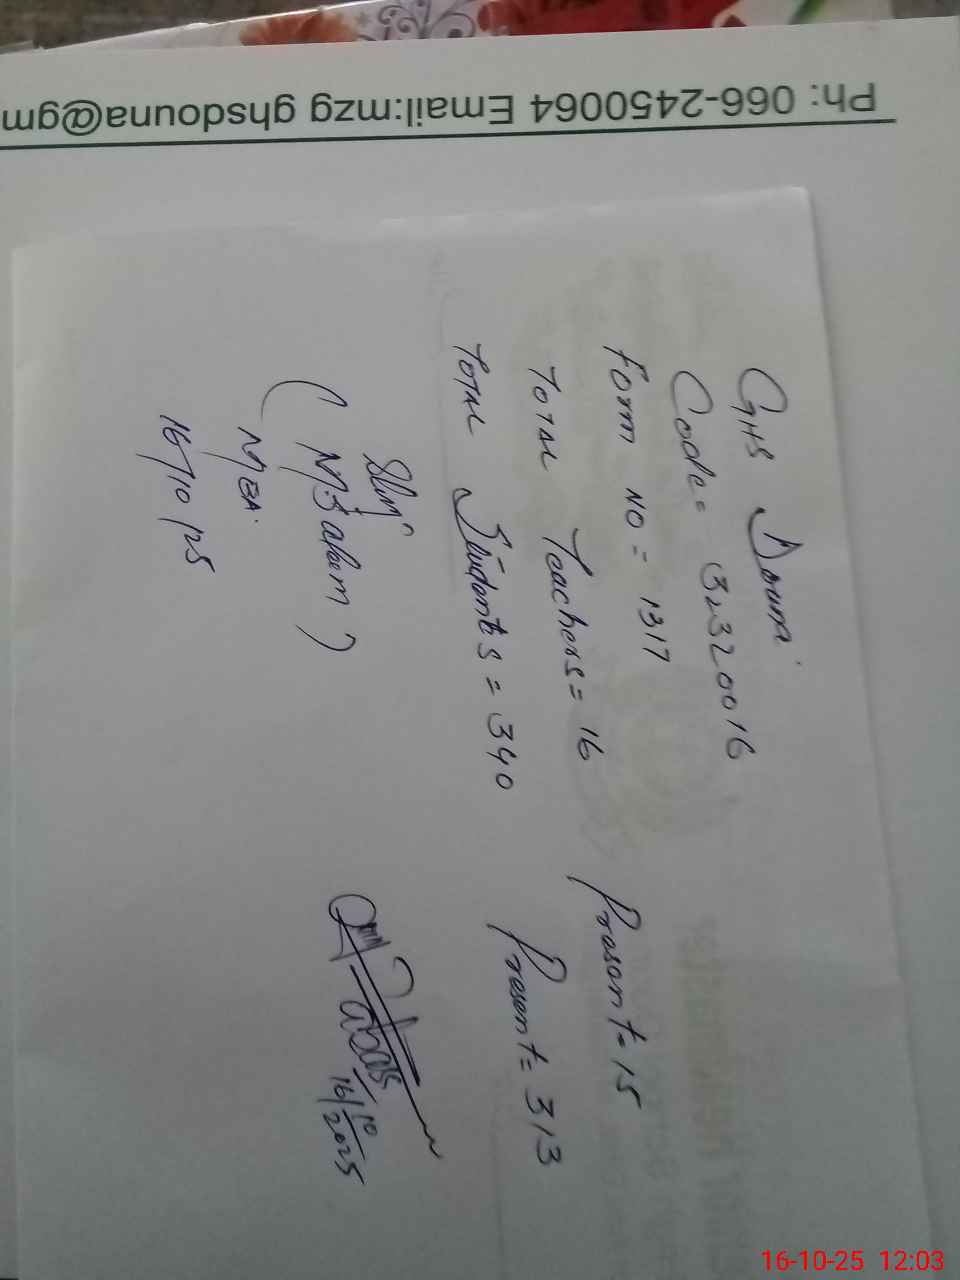 Ph: 066-2450064 Email:mzg ghsdouna@gm
GHS Douna
Code= 32320016
Form NO = 1317
Total Teachers = 16 Present = 15
Total Students = 340 Present = 313
( M. Saleem )
MEA.
16/10/25
16/10/2025
16-10-25 12:03